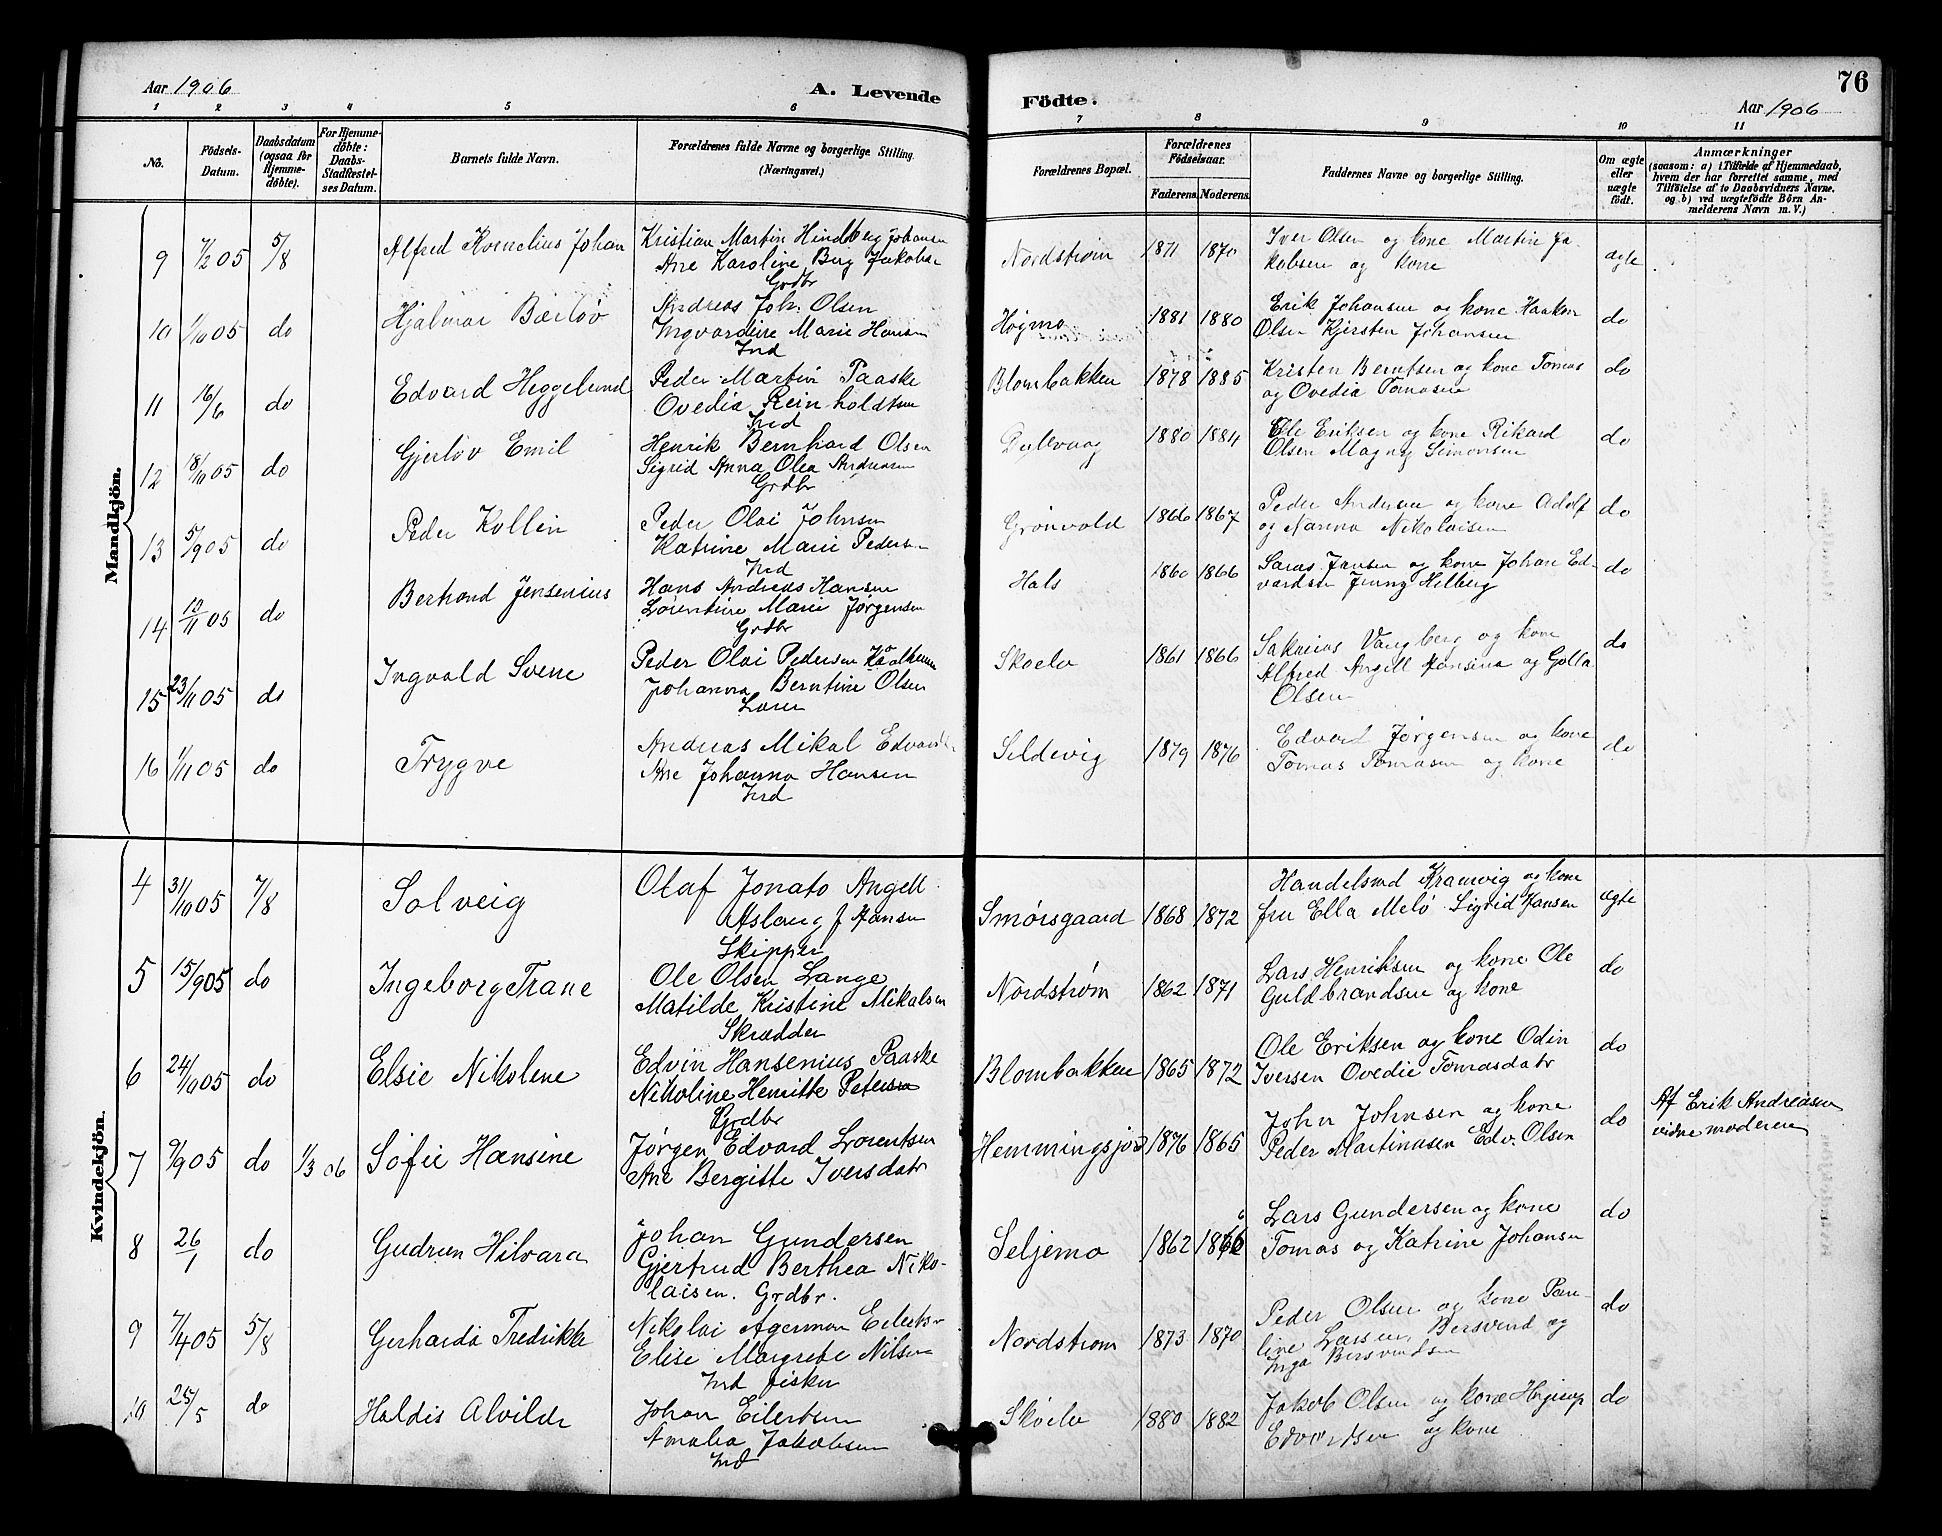 Aar 1906
A. Levende
Födte.
76
Aar 1906
1 2 3 4 5 6 7 8 9 10 11
No.
Födsels-
Datum.
Daabsdatum
(ogsaa for
Hjemme-
döbte).
For Hjemme-
döbte:
Daabs-
Stadfæstel-
ses Datum.
Barnets fulde Navn.
Forældrenes fulde Navne og borgerlige Stilling.
(Næringsvei.)
Forældrenes Bopæl.
Forældrenes
Födselsaar.
Faderens. Moderens.
Faddernes Navne og borgerlige Stilling.
Om ægte
eller
uægte
födt.
Anmærkninger
(saasom: a) i Tilfælde af Hjemmedaab,
hvem der har forrettet samme, med
Tilföielse af to Daabsvidners Navne.
og b) ved uægtefödte Börn An-
melderens Navn m. V.)
Mandkjön.
9 7/2 05 5/8 Alfred Kornelius Johan
Kristian Martin Hindberg Johansen
Ane Karoline Berg Jakobs
Grdbr
Nordstrøm 1871 1870
Iver Olsen og kone Martin Ja-
kobsen og kone
ægte
10 1/10 05 do Hjalmar Bærløv
Andreas Joh. Olsen
Ingvardine Marie Hansen
Ind
Høgmo 1881 1880
Erik Johansen og kone Haakon
Olsen Kjersten Johansen
do
11 16/6 do Edvard Heggelund
Peder Martin Paaske
Ovedia Reinholdtsen
Ind
Blombakken 1878 1885
Kristen Berntsen og kone Tomas
og Ovedia Tomasen
do
12 18/10 05 do Gjerløv Emil
Henrik Bernhard Olsen
Sigrid Anna Olea Andreasen
Grdbr
1880 1884
Ole Eriksen og kone Rikard
Olsen Magny Simonsen
do
13 5/9 05 do Peder Kollin
Peder Olai Johnsen
Katrine Marie Peders
Ind
Grønvold 1866 1867
Peder Andersen og kone Adolf
og Nanna Nikolaisen
do
14 10/11 05 do Berhard Jensenius
Hans Andreas Hansen
Lorentine Marie Jørgensen
Grdbr
Hals 1860 1866
Jansen og kone Johan Ed-
vardsen Jenny Hilberg
do
15 23/11 05 do Ingvald Svene
Peder Olai Pedersen
Johanna Berntine Olsen
Skoelv 1861 1866
Sakarias Vangberg og kone
Alfred Angell Hansina og Golla
Olsen
do
16 1/11 05 do Trygve
Andreas Mikal Edvards
Ane Johanna Hansen
Ind
Sildevig 1879 1876
Edvard Jørgensen og kone
Tomas Tomasen og kone
do
Kvindekjön.
4 31/10 05 7/8 Solveig
Olaf Jonato Angell
Aslaug f Hansen
Skipper
Smørsgaard 1868 1872
Handelsmd Kramvig og kone
fru Ella Melö Sigrid Hansen
ægte
5 15/9 05 do Ingeborg Trane
Ole Olsen Lange
Matilde Kristine Mikalsen
Skrædder
Nordstrøm 1862 1871
Lars Henriksen og kone Ole
Guldbrandsen og kone
do
6 24/10 05 do Elsie Nikolene
Edvin Hansenius Paaske
Nikoline Henritte Petersen
Grdbr
Blombakken 1865 1872
Ole Eriksen og kone Odin
Iversen Ovedie Tomasdatr
do
7 9/9 05 do 1/3 06 Sofie Hansine
Jørgen Edvard Lorentsen
Ane Bergitte Iversdatr
Hemmingsjord 1876 1865
John Johnsen og kone
Peder Martinasen Edv. Olsen
do
Af Erik Andreasen
vidne moderen
8 26/1 do Gudrun Hilvara
Johan Gundersen
Gjertrud Berthea Niko-
laisen. Grdbr.
Seljemo 1862 1866
Lars Gundersen og kone
Tomas og Katrine Johansen
do
9 7/4 05 5/8 Gerharda Fredrikke
Nikolai Agerman Eilerts
Elise Margrete Nilsen
Ind fisker
Nordstrøm 1873 1870
Peder Olsen og kone Pau-
line Larsen, Bersvend og
Inga Bersvendsen
do
10 25/5 do Haldis Alvilde
Johan Eilertsen
Amalia Jakobsen
Ind
Skoelv 1880 1882
Jakob Olsen og kone
Edvardsen og kone
do